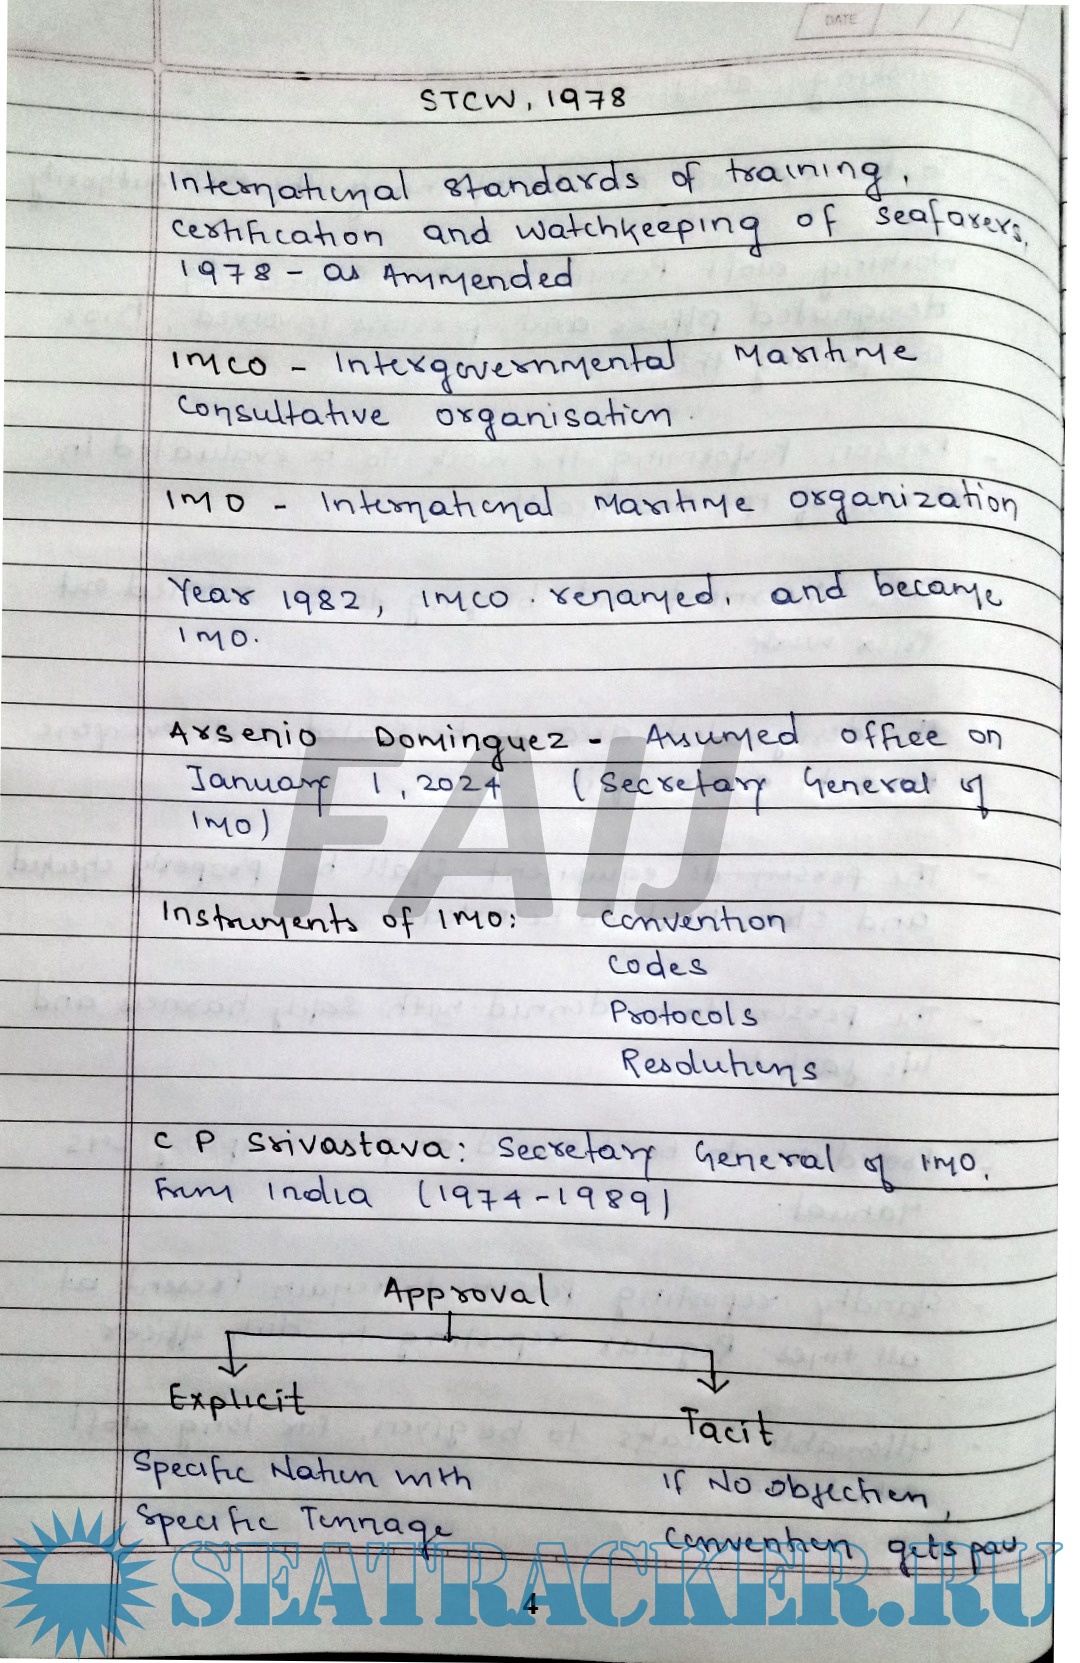 DATE / /
STCW, 1978
International standards of training,
certification and watchkeeping of seafarers,
1978 - as Ammended
IMCO - Intergovernmental Maritime
Consultative organisation.
IMO - International Maritime organization
Year 1982, IMCO. renamed. and became
IMO.
Arsenio Dominguez - Assumed office on
January 1, 2024 (Secretary General of
IMO)
FAIJ
Instruments of IMO: Convention
Codes
Protocols
Resolutions
C P Srivastava: Secretary General of IMO.
From India (1974-1989)
Approval.
Explicit Tacit
Specific Nation with If No objection,
Specific Tonnage Convention gets pass
SEATRACKER.RU
4